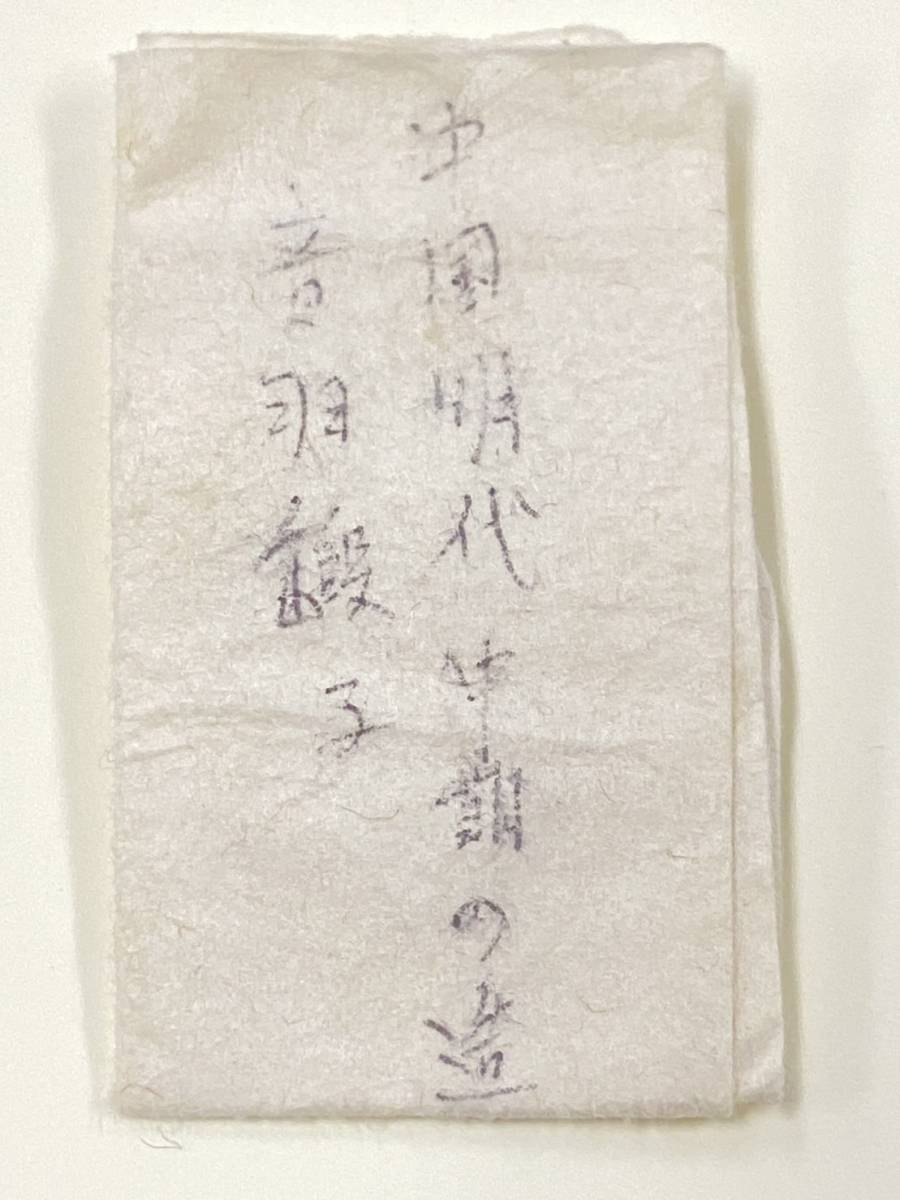 中国明代中期の造
音羽緞子